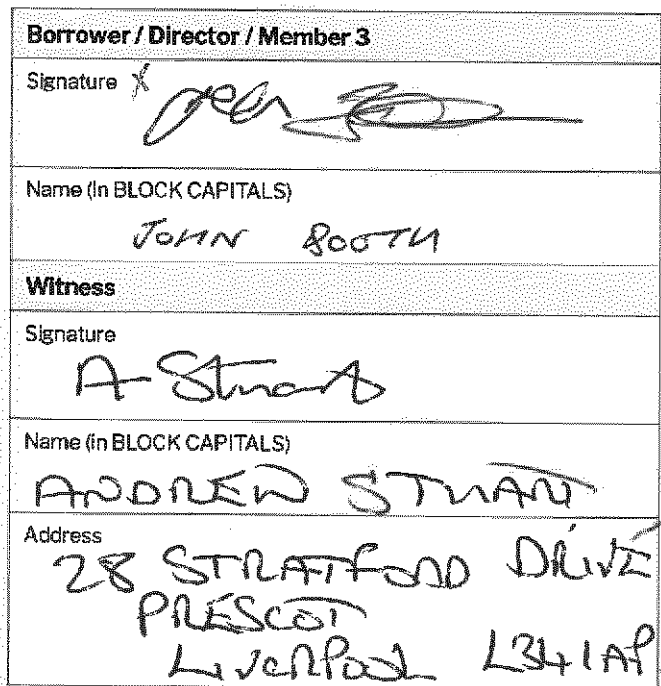 Borrower / Director / Member 3
Signature X
Name (in BLOCK CAPITALS)
JOHN BOOTH
Witness
Signature
A Stuart
Name (in BLOCK CAPITALS)
ANDREW STUART
Address
28 STRATFORD DRIVE
PRESCOT
LIVERPOOL L34 1AP